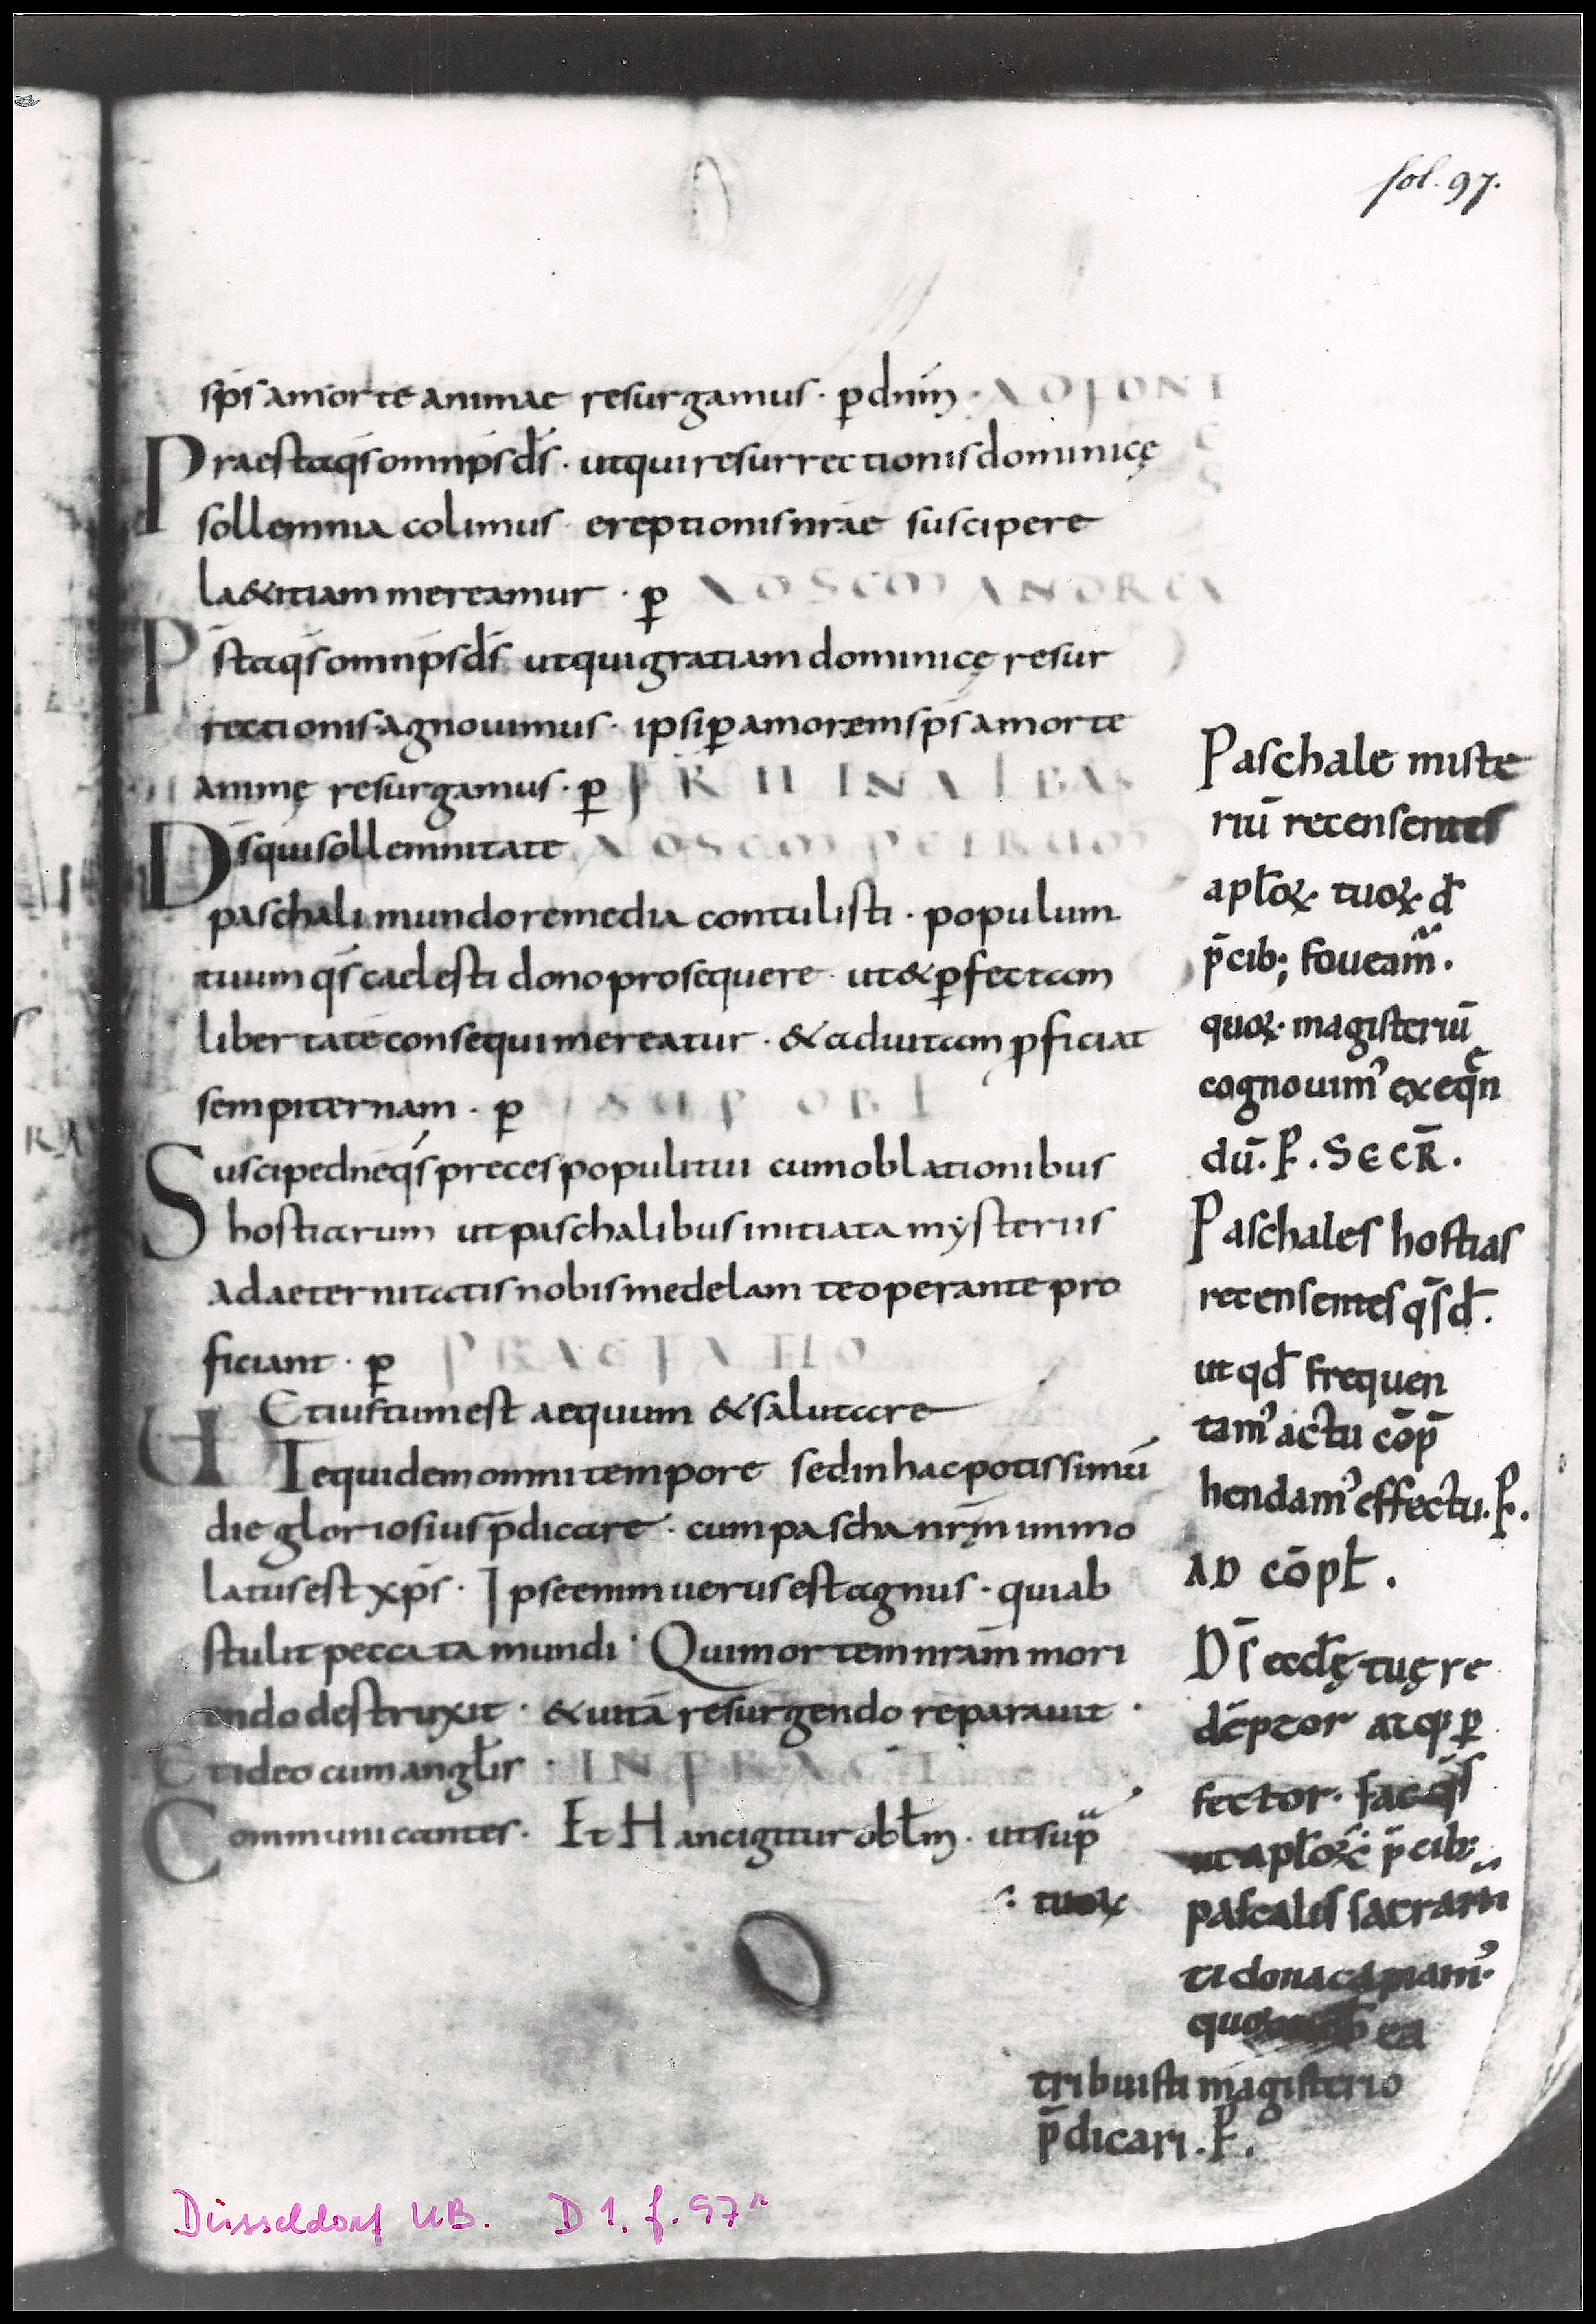 fol. 97.
sp̄s amorte animae resurgamus · p̱ dnm̄ · AD FONT
Praestaq̄s omnip̄s d̄s · utqui resurrectionis dominicę
sollemnia colimus ereptionis nr̄ae suscipere
laetitiam mereamur · p̱ AD SCM ANDREA
P̄staq̄s omnip̄s d̄s utqui gratiam dominicę resur
rectionis agnouimus · ipsi p̱ amorem sp̄s amorte
animę resurgamus · p̱ FR II IN ALBAS
D̄s qui sollemnitate AD SCM PETRUM
paschali mundo remedia contulisti · populum
tuum q̄s caelesti dono prosequere · ut & p̱fectam
libertatē consequi mereatur · & ad uitam ꝓficiat
sempiternam · p̱ SUP OBL
Suscipe dn̄e q̄s preces populi tui cum oblationibus
hostiarum ut paschalibus initiata mysteriis
ad aeternitatis nobis medelam te operante pro
ficiant · p̱ PRAEFATIO
U Et iustum est aequum & salutare
Te quidem omni tempore sed in hac potissimū
die gloriosius p̄dicare · cum pascha nr̄m immo
latus est xp̄s · Ipse enim uerus est agnus · qui ab
stulit peccata mundi · Qui mortem nr̄am mori
endo destruxit · & uitā resurgendo reparauit ·
Et ideo cum angłis · INFRA ACT
Communicantes · Et Hanc igitur obłm · ut sup̄
Paschale miste
riū recensentes
apłoꝝ · tuoꝝ · d̄s
p̄cib; foueam̄ ·
quoꝝ · magisteriū
cognouim᾽ exeqēn
dū · P̱ · SECR̄ ·
Paschales hostias
recensentes q̄s d̄s ·
ut qđ frequen
tam᾽ actu cōp̄
hendam᾽ effectu · P̱ ·
AD CŌPŁ ·
D̄s eccłę tuę re
dēptor atq; p̱
fector · fac q̄s
ut apłoꝝ ·: p̄cib;
·: tuoꝝ
pascalis sacram
ti dona capiam᾽ ·
ea
tribuisti magisterio
p̄dicari · P̱ ·
Düsseldorf UB. D 1, f. 97r